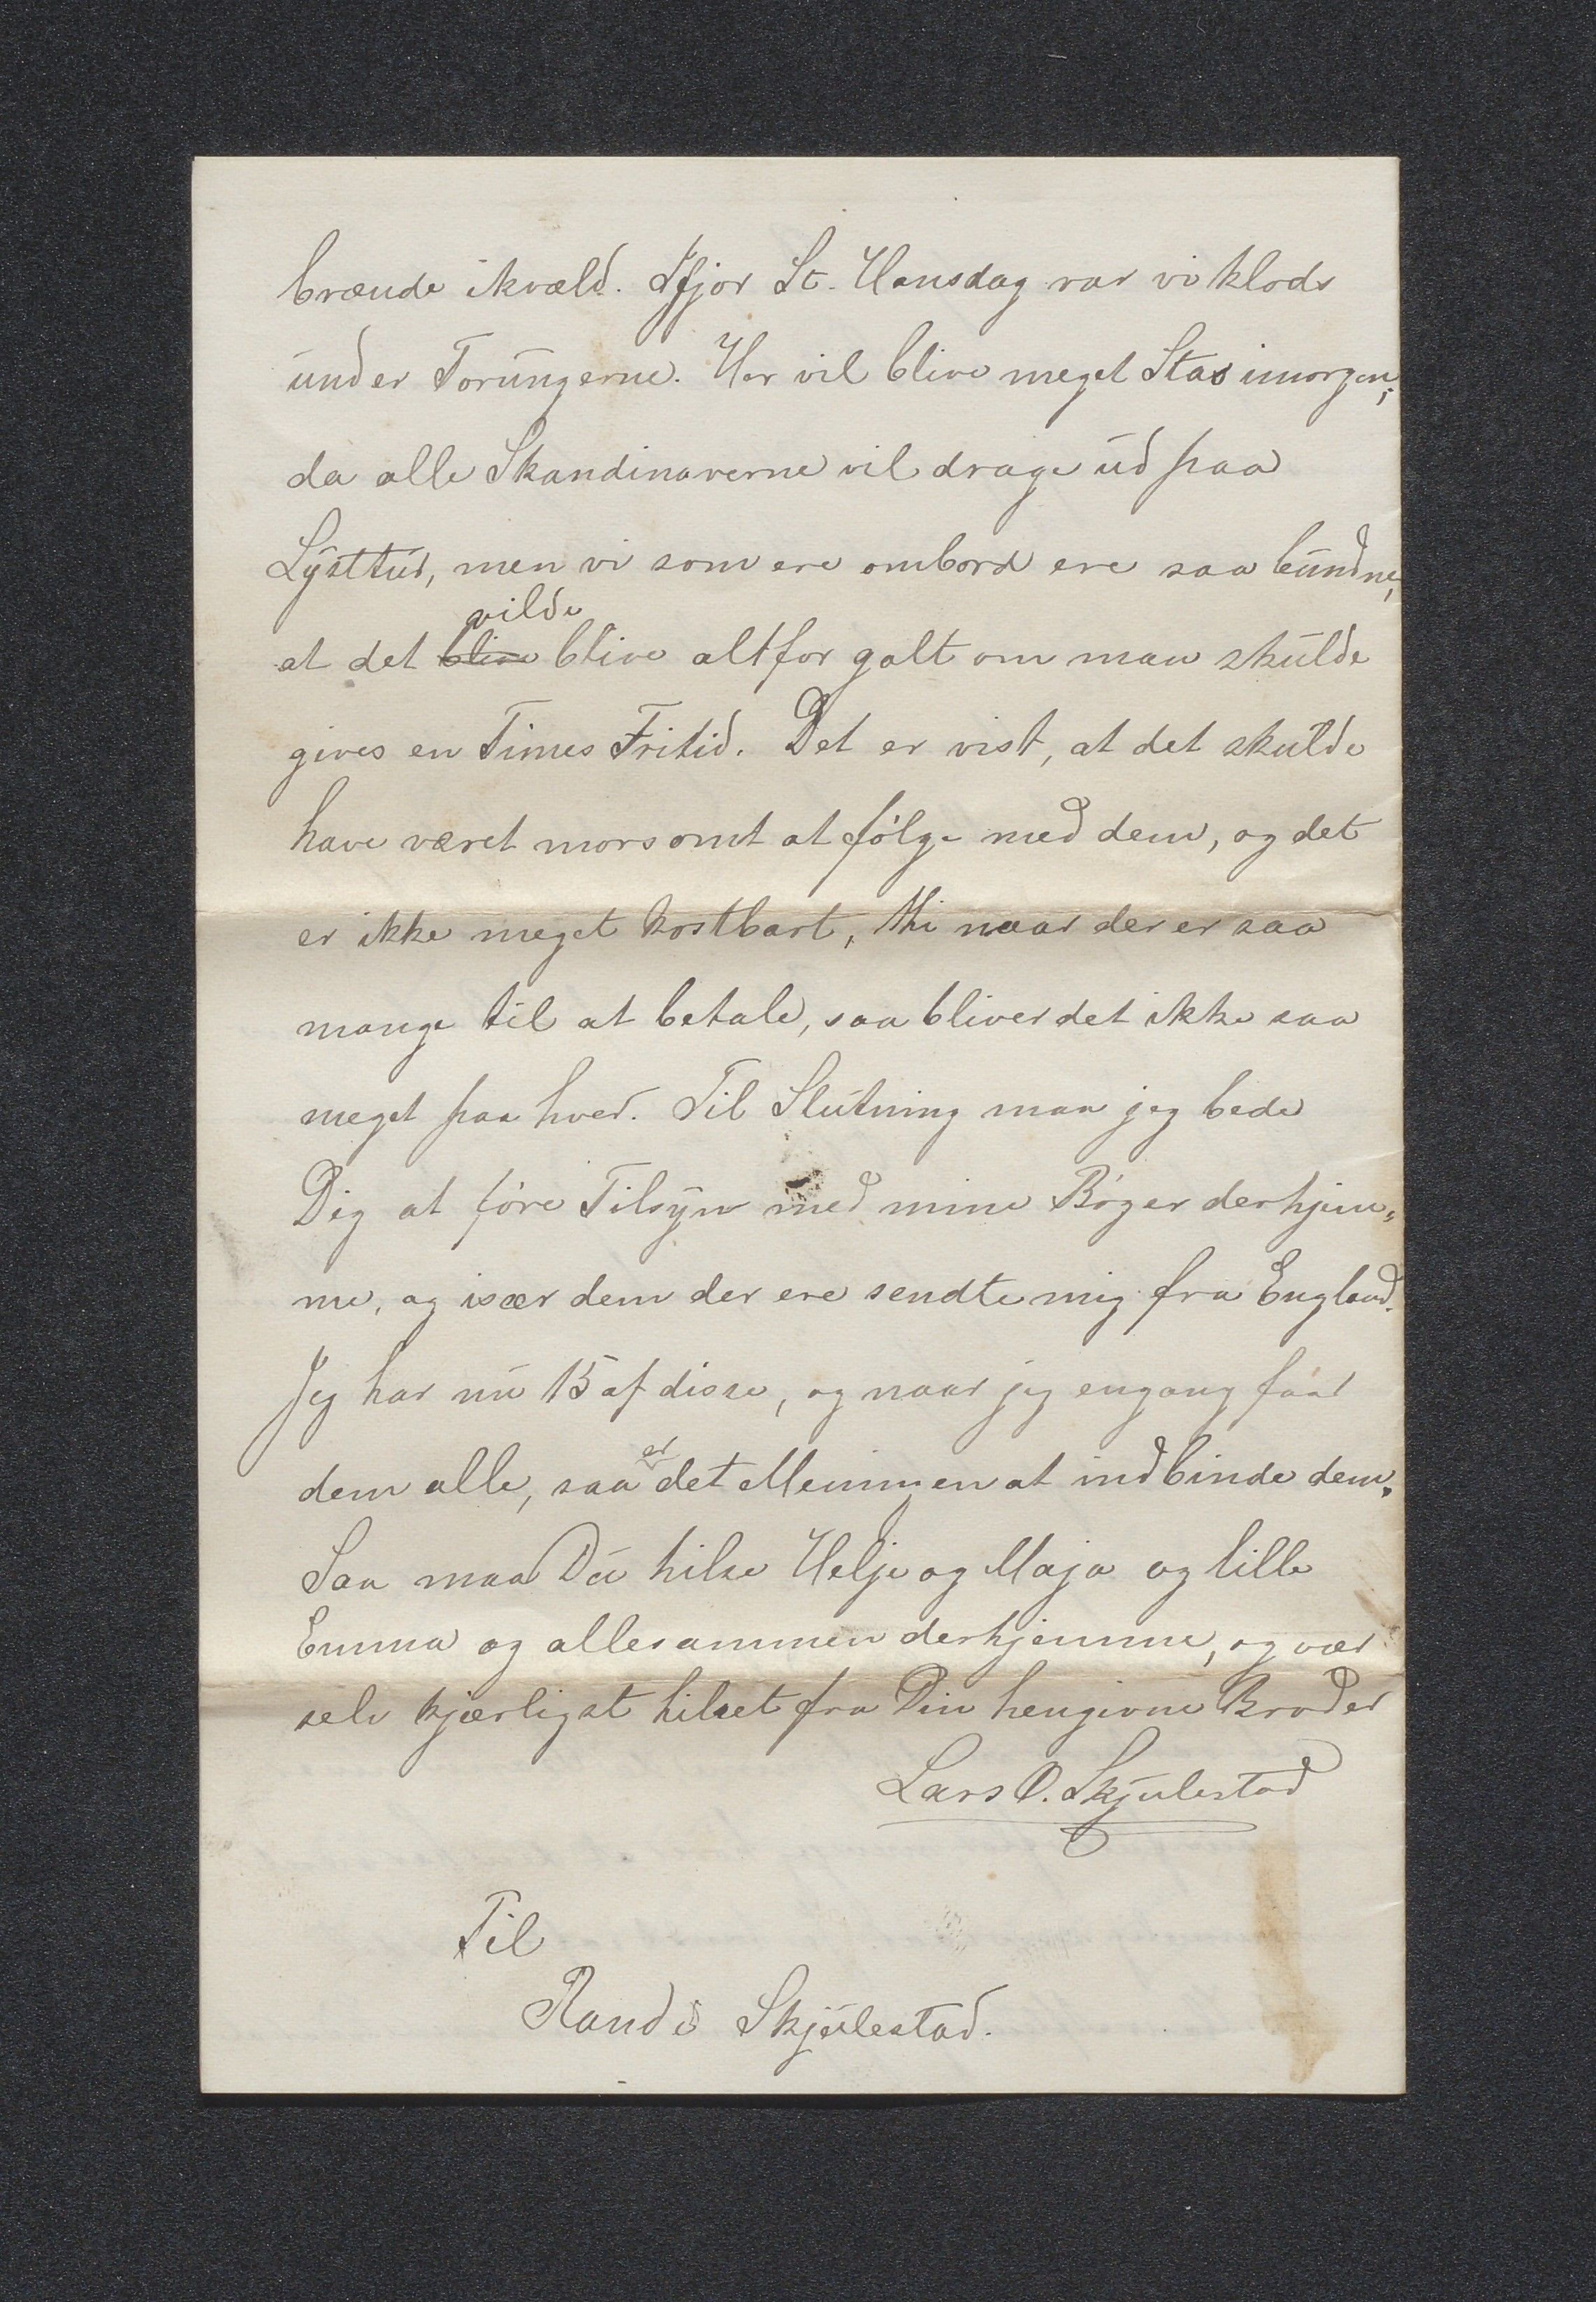 brænde ikvæld. Ifjor St. Hansdag var vi klods
under Torungerne. Her vil blive meget Stas imorgen,
da alle Skandinaverne vil drage ud paa
Lysttur, men vi som ere ombord ere saa bundne,
vilde
at det blive blive altfor galt om man skulde
gives en Times Fritid. Det er vist, at det skulde
have været morsomt at følge med dem, og det
er ikke meget kostbart, thi naar der er saa
mange til at betale, saa bliver det ikke saa
meget paa hver. Til Slutning maa jeg bede
Dig at føre Tilsyn med mine Bøger derhjem-
me, og især dem der ere sendte mig fra England.
Jeg har nu 15 af disse, og naar jeg engang faar
er
dem alle, saa det Meningen at indbinde dem.
Saa maa Du hilse Helje og Maja og lille
Emma og allesammen derhjemme, og vær
selv kjærligst hilset fra Din hengivne Broder
Lars O. Skjulestad
Til
Randi Skjulestad.